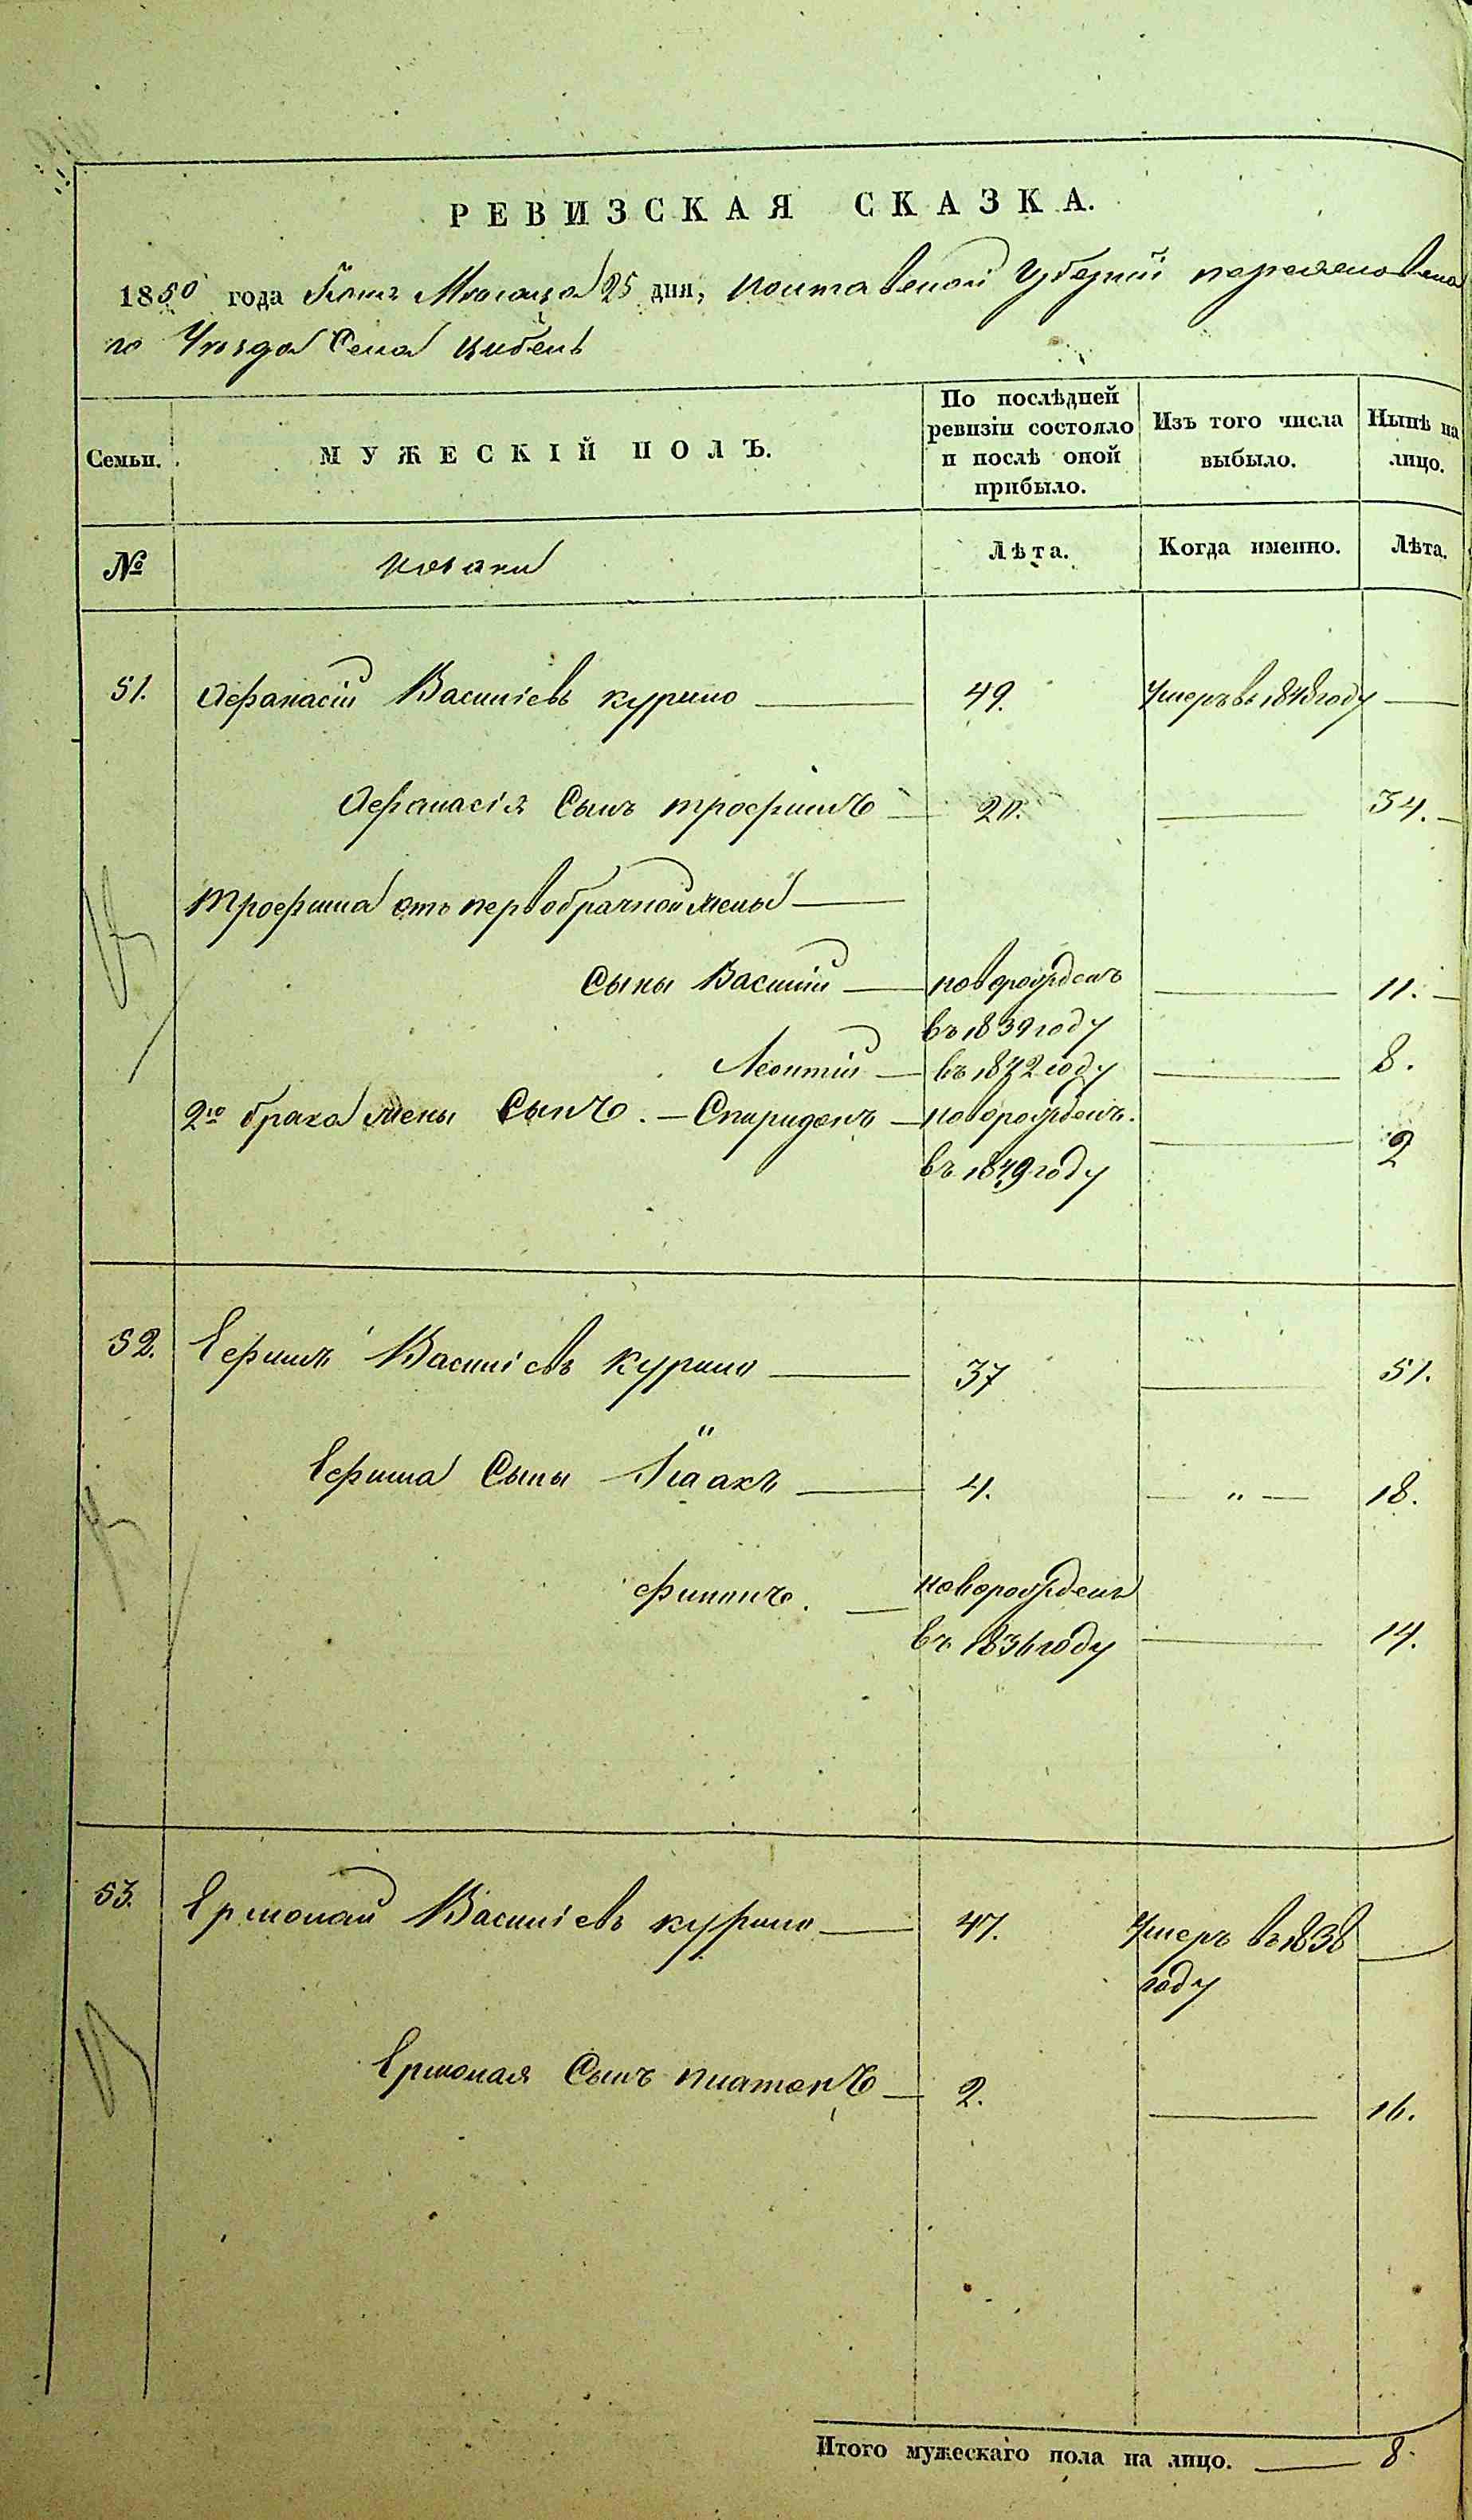 РЕВИЗСКАЯ СКАЗКА.
1850 года Мѣсяца 25 дня, Полтавской Губерніи переяславска
го Уѣзда Села Цибель
Семьи. МУЖЕСКІЙ ПОЛЪ. По послѣдней ревизіи состояло и послѣ оной прибыло. Изъ того числа выбыло. Нынѣ на лицо.
№ козаки Лѣта. Когда именно. Лѣта.
51. Афанасій Василіевъ курило 49. Умеръ въ 1848 году
Афанасія Сынъ трофимъ 20. 34.
трофима отъ первобрачной жены
Сыны Василій новорожденъ 11.
въ 1839 году
Леонтій въ 1842 году 8.
2го брака жены Сынъ. Спиридонъ новорожденъ. 2
въ 1849 году
52. Ефимъ Василіевъ курило 37 51.
Ефима Сыны Ісаакъ 4. " 18.
филипъ. новорожденъ
въ 1836 году 14.
53. Ермолай Василіевъ курило 47. Умеръ въ 1838
году
Ермолая Сынъ платонъ 2. 16.
Итого мужескаго пола на лицо. 8.